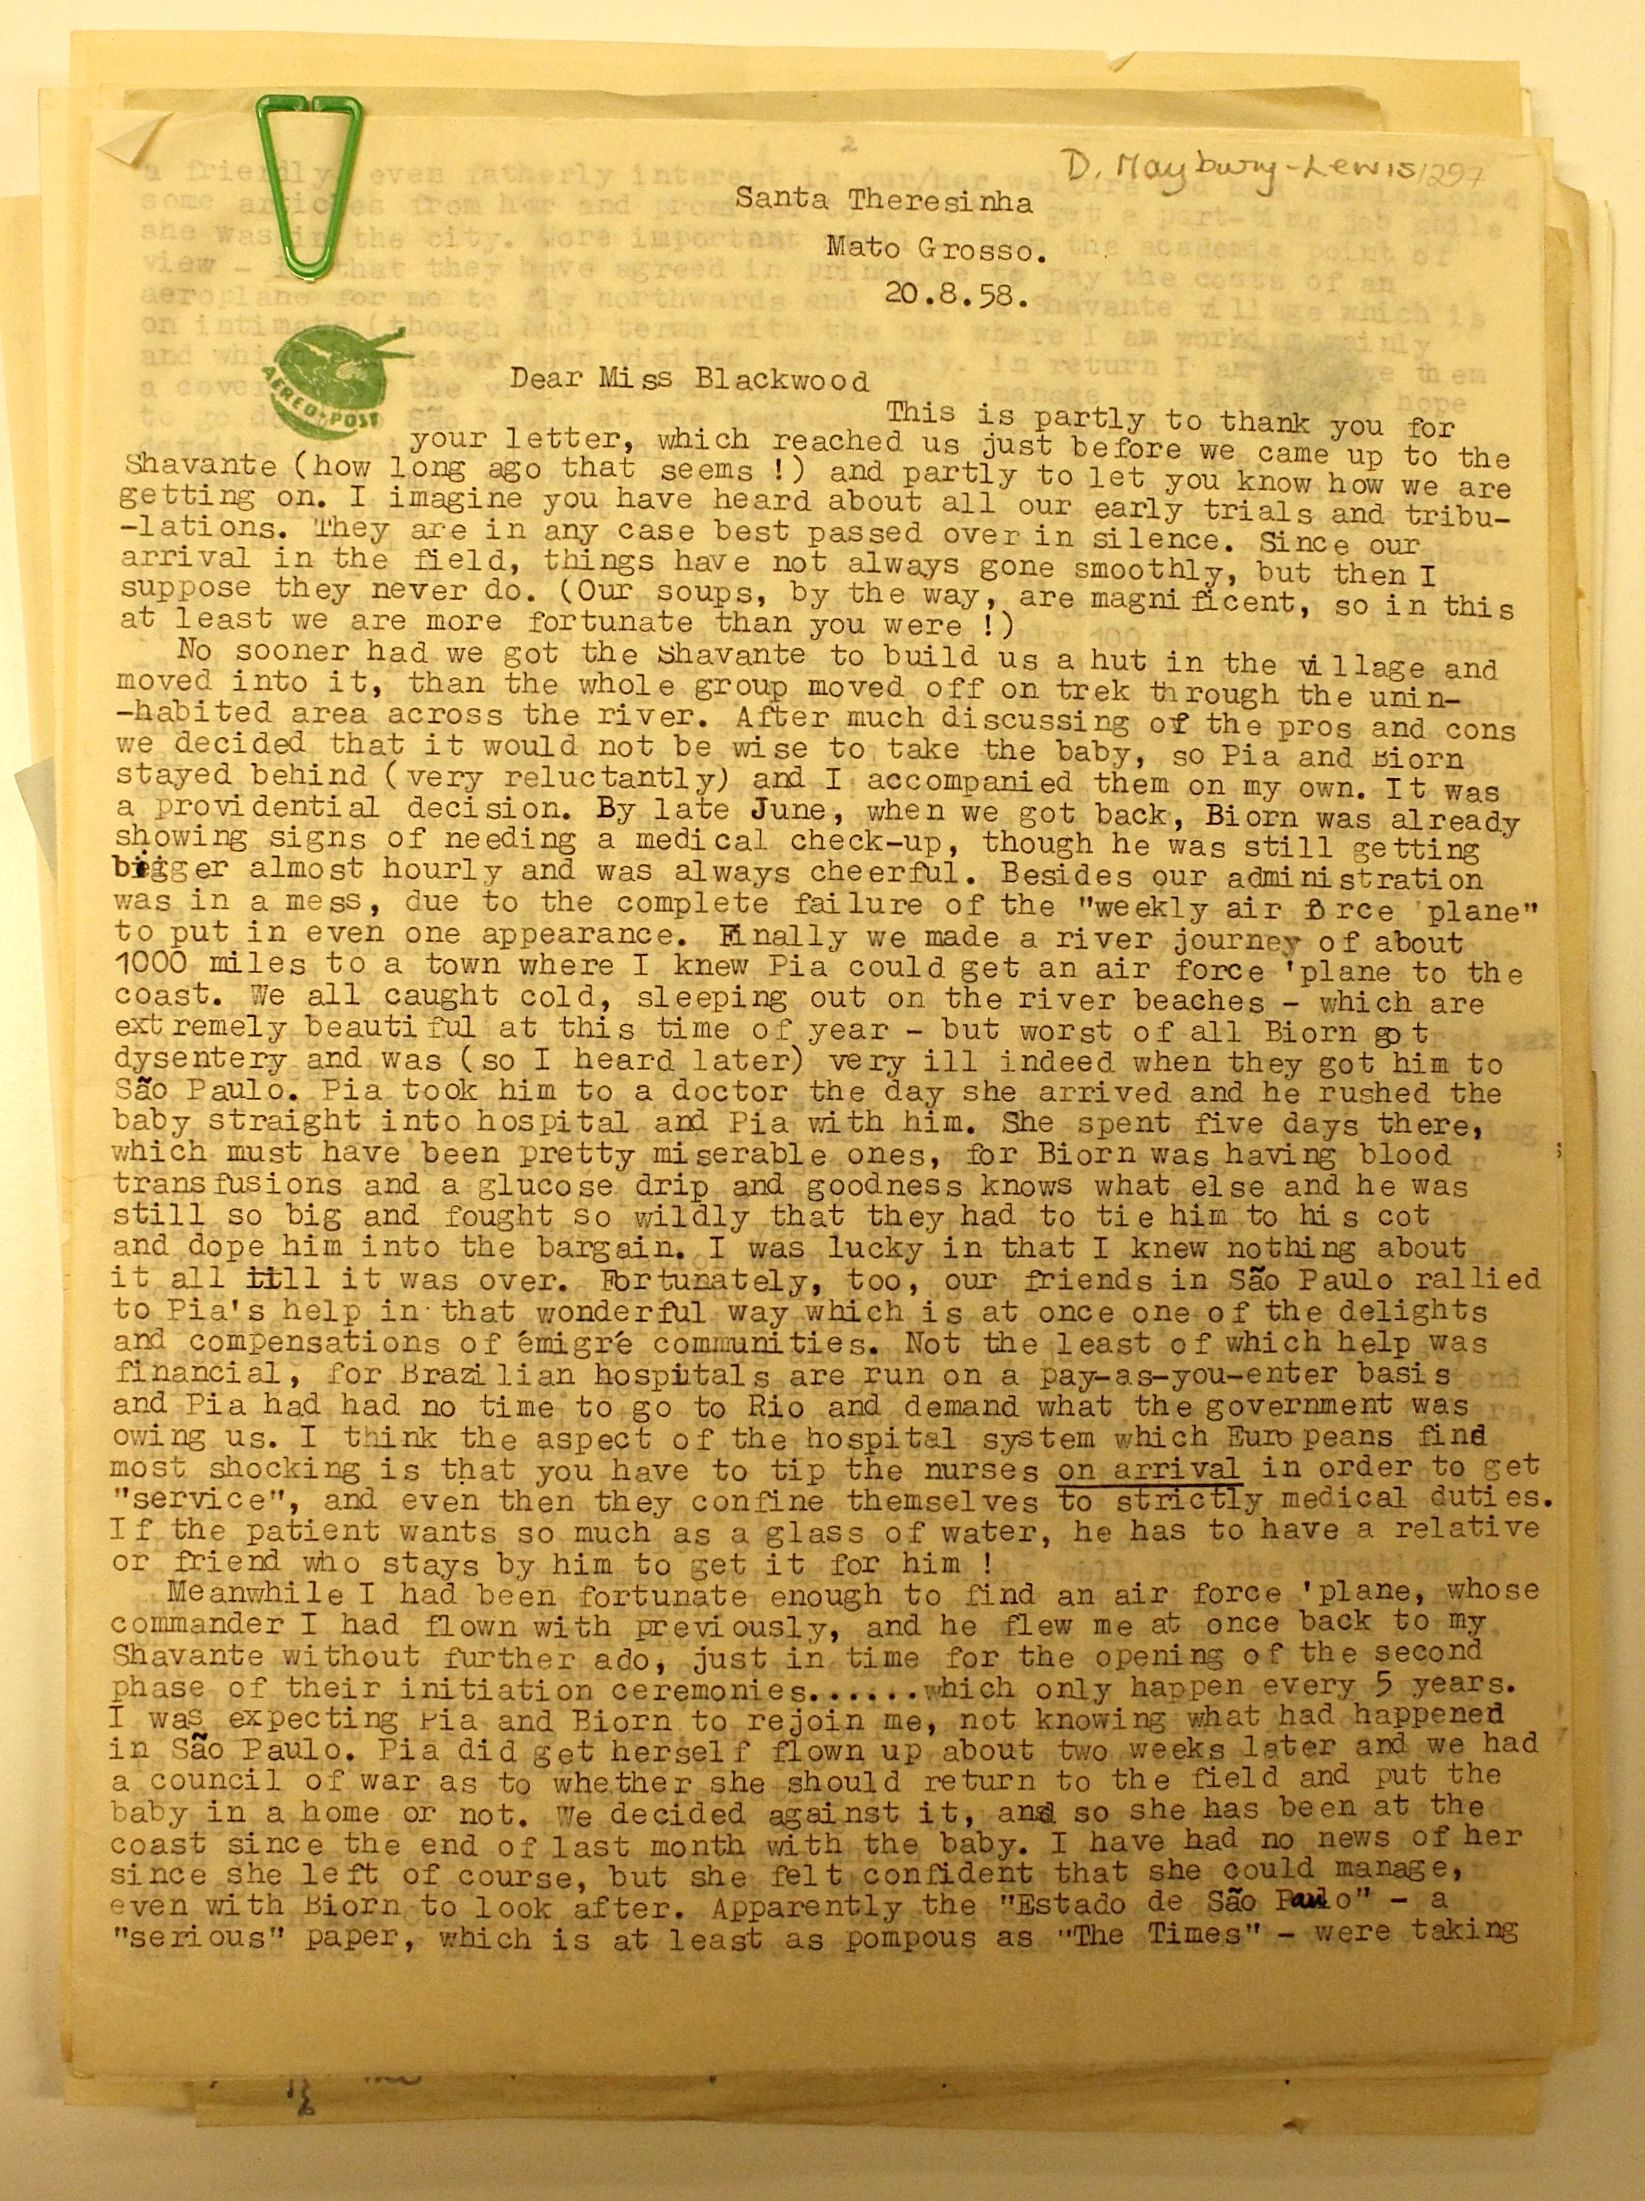 D. Maybury-Lewis 1297
Santa Theresinha
Mato Grosso.
20.8.58.
AEREO-POST
Dear Miss Blackwood
This is partly to thank you for
your letter, which reached us just before we came up to the
Shavante (how long ago that seems !) and partly to let you know how we are
getting on. I imagine you have heard about all our early trials and tribu-
-lations. They are in any case best passed over in silence. Since our
arrival in the field, things have not always gone smoothly, but then I
suppose they never do. (Our soups, by the way, are magnificent, so in this
at least we are more fortunate than you were !)
No sooner had we got the Shavante to build us a hut in the village and
moved into it, than the whole group moved off on trek through the unin-
-habited area across the river. After much discussing of the pros and cons
we decided that it would not be wise to take the baby, so Pia and Biorn
stayed behind (very reluctantly) and I accompanied them on my own. It was
a providential decision. By late June, when we got back, Biorn was already
showing signs of needing a medical check-up, though he was still getting
bigger almost hourly and was always cheerful. Besides our administration
was in a mess, due to the complete failure of the "weekly air force 'plane"
to put in even one appearance. Finally we made a river journey of about
1000 miles to a town where I knew Pia could get an air force 'plane to the
coast. We all caught cold, sleeping out on the river beaches - which are
extremely beautiful at this time of year - but worst of all Biorn got
dysentery and was (so I heard later) very ill indeed when they got him to
São Paulo. Pia took him to a doctor the day she arrived and he rushed the
baby straight into hospital and Pia with him. She spent five days there,
which must have been pretty miserable ones, for Biorn was having blood
transfusions and a glucose drip and goodness knows what else and he was
still so big and fought so wildly that they had to tie him to his cot
and dope him into the bargain. I was lucky in that I knew nothing about
it all till it was over. Fortunately, too, our friends in São Paulo rallied
to Pia's help in that wonderful way which is at once one of the delights
and compensations of émigré communities. Not the least of which help was
financial, for Brazilian hospitals are run on a pay-as-you-enter basis
and Pia had had no time to go to Rio and demand what the government was
owing us. I think the aspect of the hospital system which Europeans find
most shocking is that you have to tip the nurses on arrival in order to get
"service", and even then they confine themselves to strictly medical duties.
If the patient wants so much as a glass of water, he has to have a relative
or friend who stays by him to get it for him !
Meanwhile I had been fortunate enough to find an air force 'plane, whose
commander I had flown with previously, and he flew me at once back to my
Shavante without further ado, just in time for the opening of the second
phase of their initiation ceremonies......which only happen every 5 years.
I was expecting Pia and Biorn to rejoin me, not knowing what had happened
in São Paulo. Pia did get herself flown up about two weeks later and we had
a council of war as to whether she should return to the field and put the
baby in a home or not. We decided against it, and so she has been at the
coast since the end of last month with the baby. I have had no news of her
since she left of course, but she felt confident that she could manage,
even with Biorn to look after. Apparently the "Estado de São Paulo" - a
"serious" paper, which is at least as pompous as "The Times" - were taking